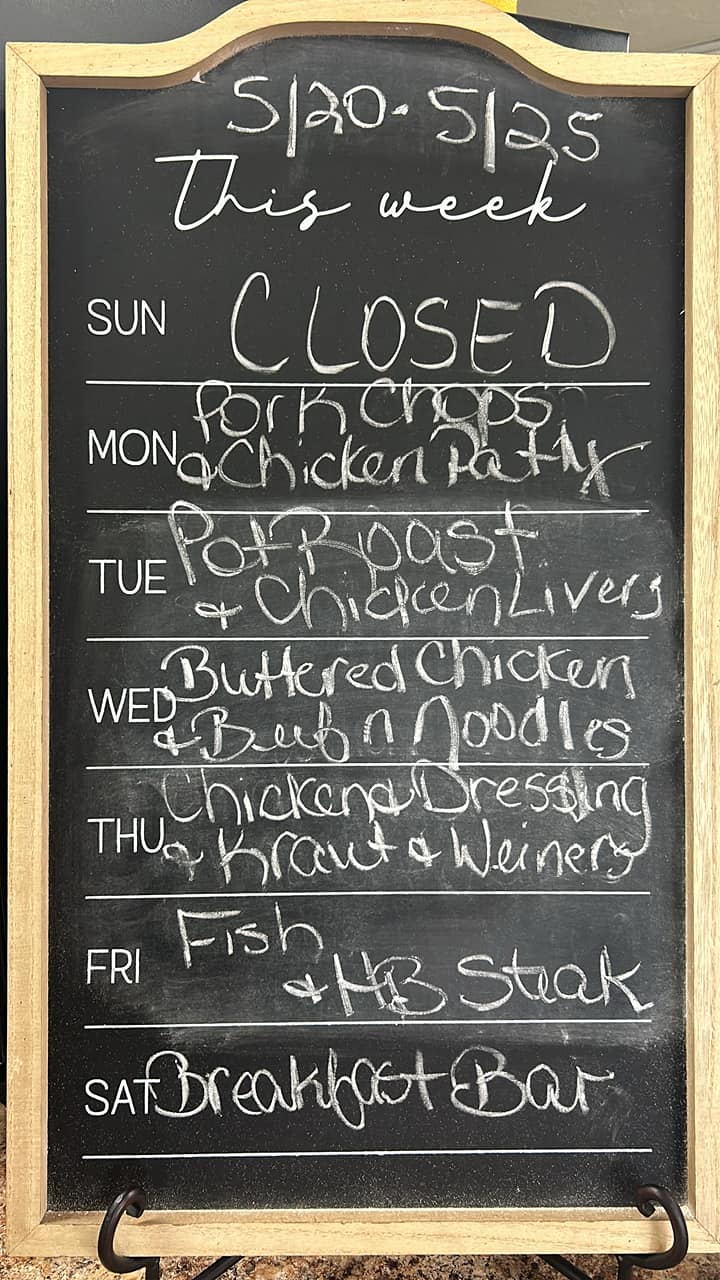 5/20-5/25
this week
SUN CLOSED
MON Pork Chops
& Chicken Patty
TUE Pot Roast
& Chicken Livers
WED Buttered Chicken
& Beef n Noodles
THU Chicken & Dressing
& Kraut & Weiners
FRI Fish
& HB Steak
SAT Breakfast Bar